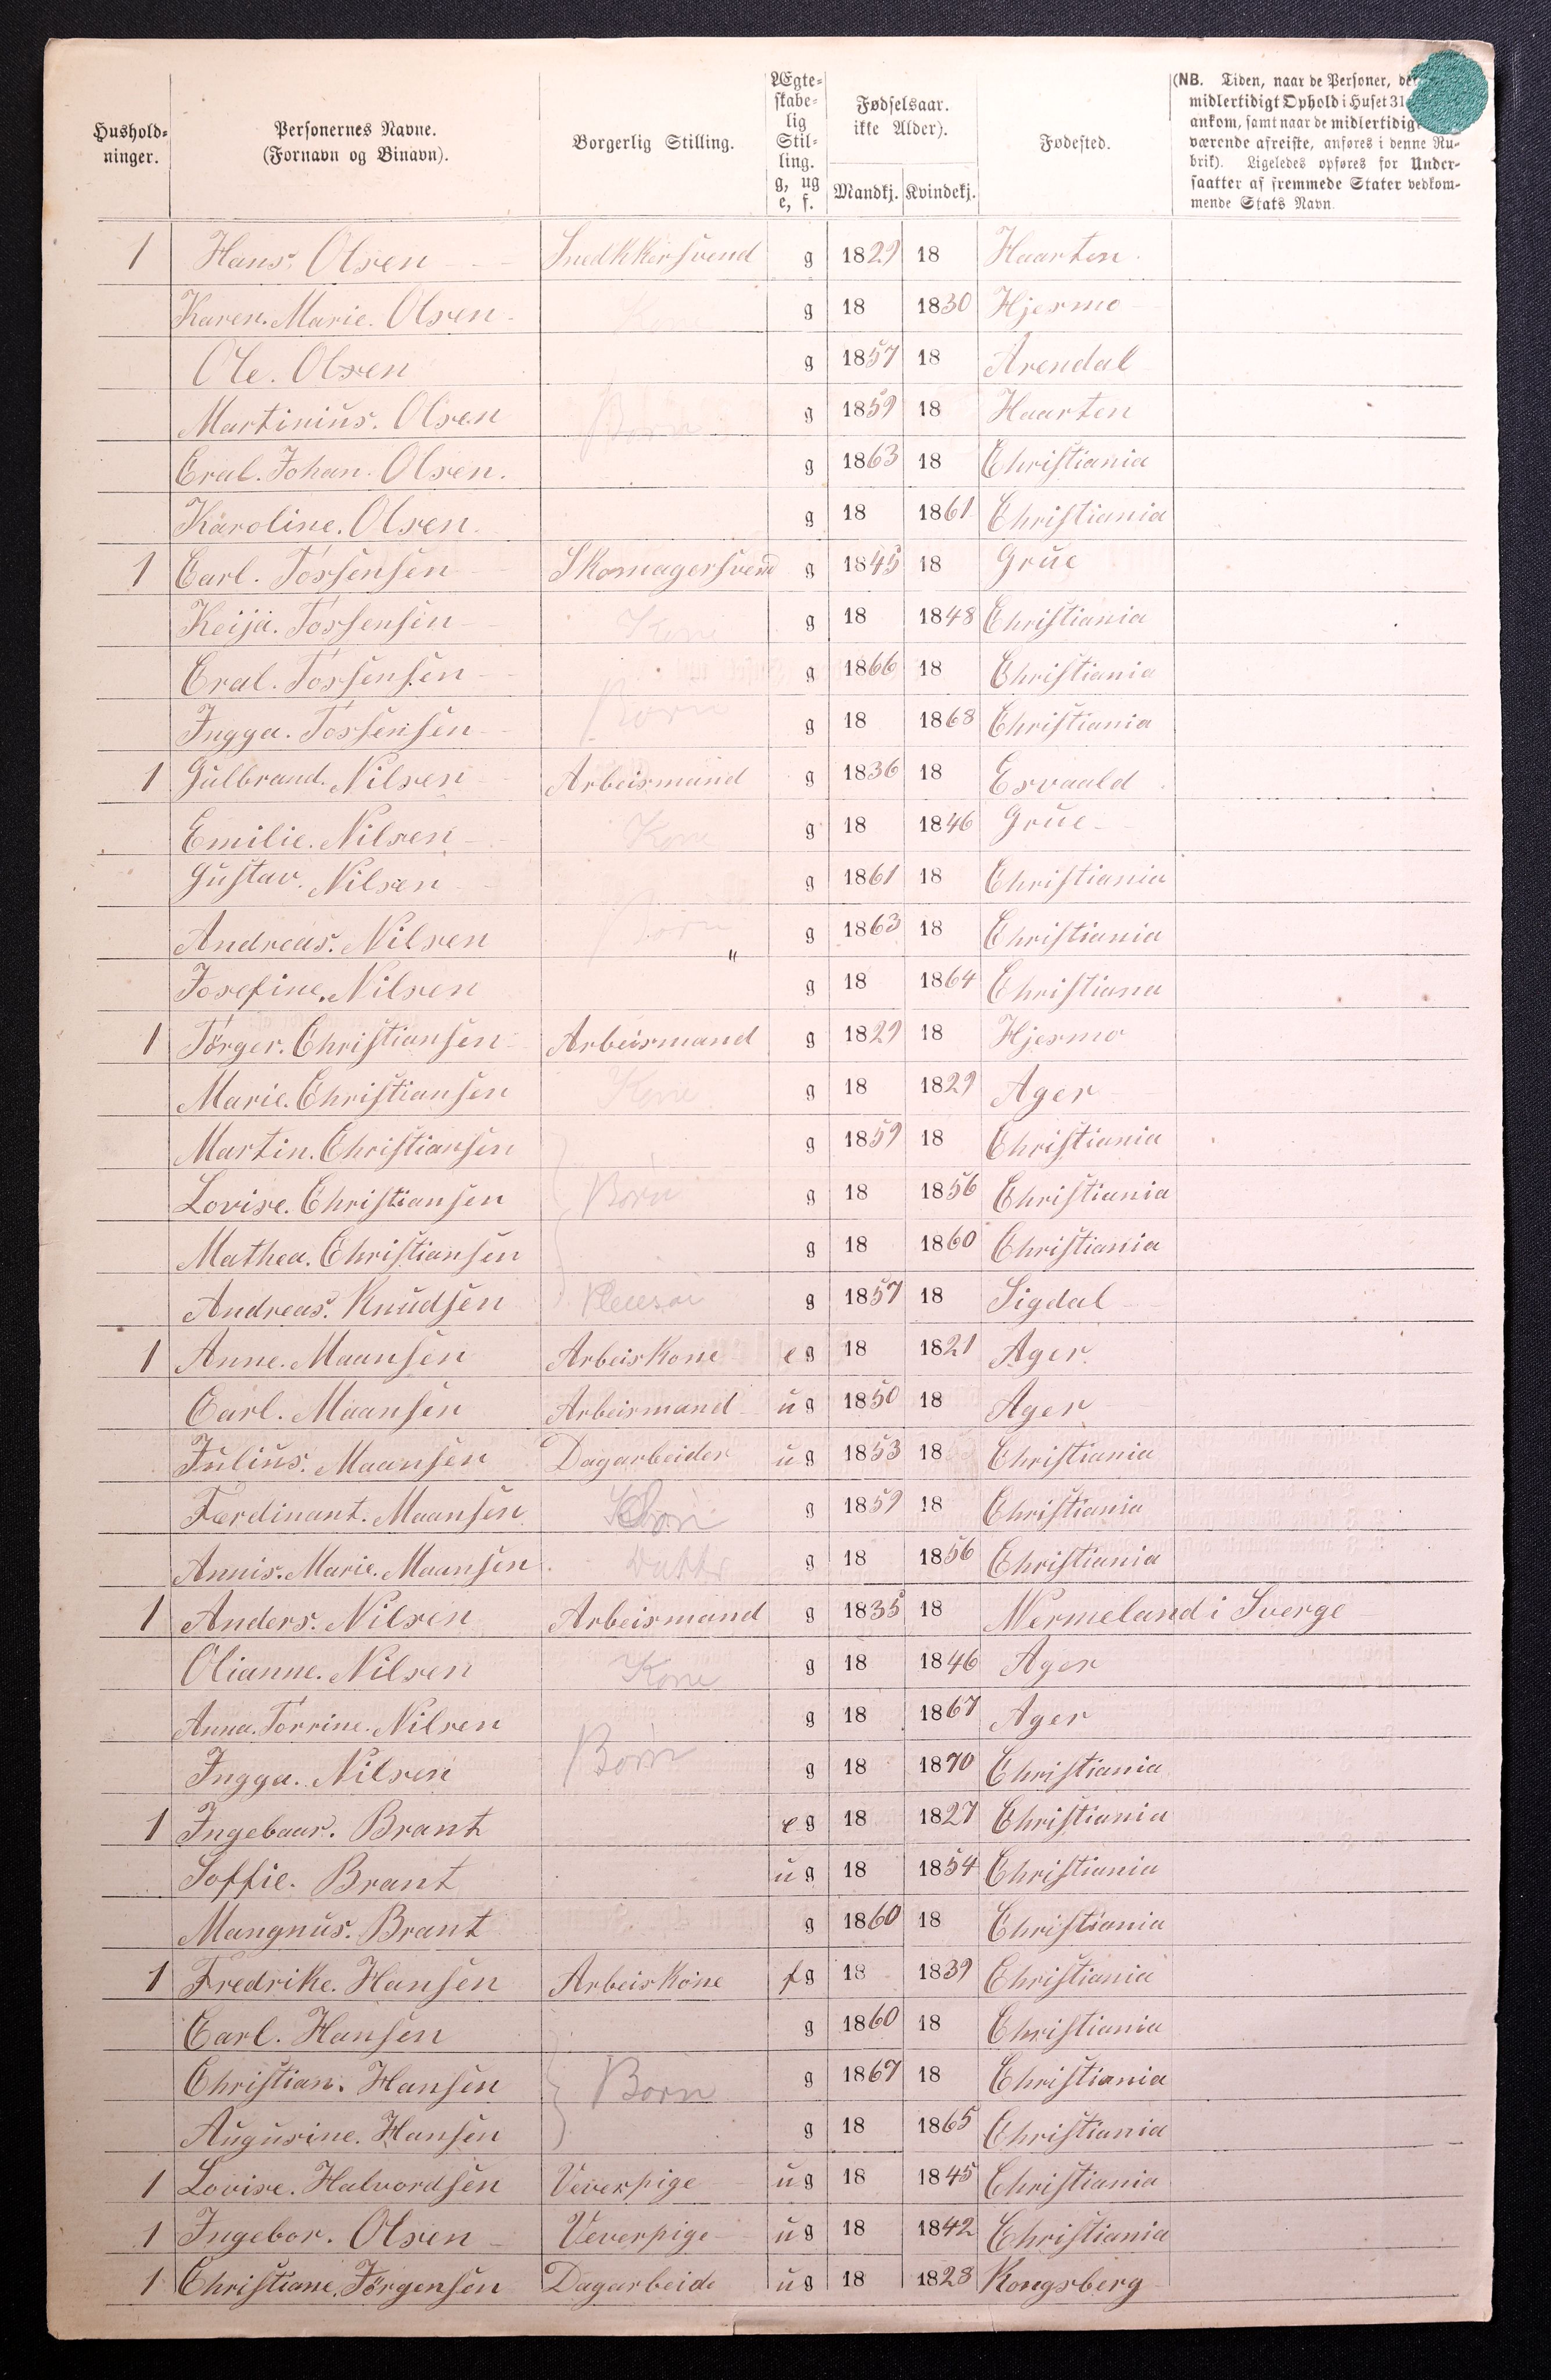 Hushold- ninger. Personernes Navne. (Fornavn og Binavn). Borgerlig Stilling. Ægte- skabe- lig Stil- ling. g, ug e, f. Fødselsaar. ikke Alder). Mandkj. Kvindekj. Fødested.
(NB. Tiden, naar de Personer, der
midlertidigt Ophold i Huset 31
ankom, samt naar de midlertidigt
værende afreiste, anføres i denne Ru-
brik). Ligeledes opføres for Under-
saatter af fremmede Stater vedkom-
mende Stats Navn.
1 Hans. Olsen Snedkkersvend g 1829 18 Haarten.
Karen. Marie. Olsen g 18 1830 Hjermo
Ole. Olsen g 1857 18 Arendal
Martinius. Olsen Børn g 1859 18 Haarten
Cral. Johan. Olsen. g 1863 18 Christiania
Karoline. Olsen. g 18 1861 Christiania
1 Carl. Tossensen Skomagersvend g 1845 18 Grue
Keija. Tossensen Kone g 18 1848 Christiania
Cral. Tossensen g 1866 18 Christiania
Ingga. Tossensen Børn g 18 1868 Christiania
1 Gulbrand. Nilsen Arbeismand g 1836 18 Esvaald
Emilie. Nilsen Kone g 18 1846 Grue
Gustav. Nilsen g 1861 18 Christiania
Andreas. Nilsen Børn " g 1863 18 Christiania
Josefine. Nilsen g 18 1864 Christiana
1 Törger. Christiansen Arbeismand g 1829 18 Hjermo
Marie. Christiansen Kone g 18 1829 Ager
Martin. Christiansen g 1859 18 Christiania
Lovise. Christiansen Børn g 18 1856 Christiania
Mathea. Christiansen g 18 1860 Christiania
Andreas. Knudsen g 1857 18 Sigdal
1 Anne. Maansen Arbeiskone e g 18 1821 Ager.
Carl. Maansen Arbeismand u g 1850 18 Ager
Julius. Maansen Dagarbeider u g 1853 18 Christiania
Ferdinant. Maansen Søn g 1859 18 Christiania
Annis. Marie. Maansen. Datter g 18 1856 Christiania
1 Anders. Nilsen Arbeismand g 1835 18 Wermeland i Sverge
Olianne. Nilsen Kone g 18 1846 Ager
Anna. Torrine. Nilsen g 18 1867 Ager
Ingga. Nilsen Børn g 18 1870 Christiania
1 Ingebaar. Brant e g 18 1827 Christiania
Soffie. Brant u g 18 1854 Christiania
Mangnus. Brant g 1860 18 Christiania
1 Fredrike. Hansen Arbeiskone f g 18 1839 Christiania
Carl. Hansen g 1860 18 Christiania
Christian. Hansen Børn g 1867 18 Christiania
Augusine. Hansen g 18 1865 Christiania
1 Lovise. Halvordsen Veverpige u g 18 1845 Christiania
1 Ingebor. Olsen Veverpige u g 18 1842 Christiania
1 Christiane. Jørgensen Dagarbeide u g 18 1828 Kongsberg